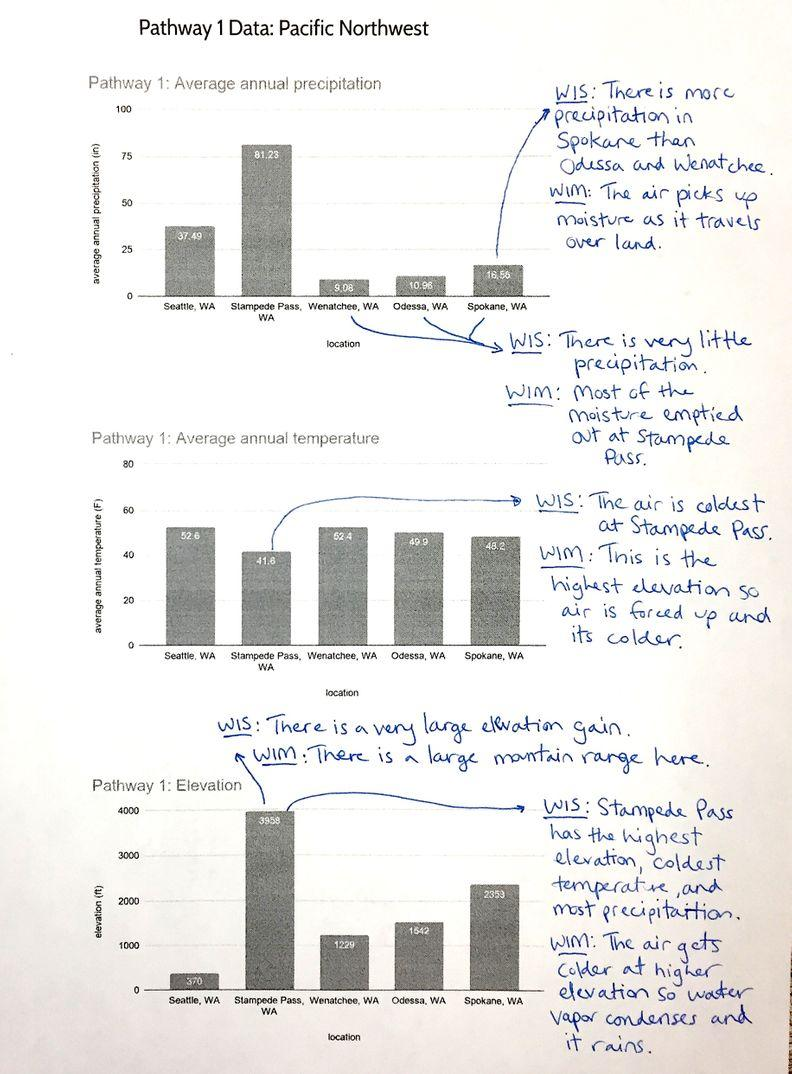 Pathway 1 Data: Pacific Northwest
Pathway 1: Average annual precipitation
100
75
50
25
0
average annual precipitation (in)
37.49
81.23
9.08
10.96
16.56
Seattle, WA
Stampede Pass,
WA
Wenatchee, WA
Odessa, WA
Spokane, WA
location
WIS: There is more
precipitation in
Spokane than
Odessa and Wenatchee.
WIM: The air picks up
moisture as it travels
over land.
WIS: There is very little
precipitation.
WIM: Most of the
moisture emptied
out at Stampede
Pass.
Pathway 1: Average annual temperature
80
60
40
20
0
average annual temperature (F)
52.6
41.6
52.4
49.9
48.2
Seattle, WA
Stampede Pass,
WA
Wenatchee, WA
Odessa, WA
Spokane, WA
location
WIS: The air is coldest
at Stampede Pass.
WIM: This is the
highest elevation so
air is forced up and
its colder.
WIS: There is a very large elevation gain.
WIM: There is a large mantain range here.
Pathway 1: Elevation
4000
3000
2000
1000
0
elevation (ft)
370
3958
1229
1542
2353
Seattle, WA
Stampede Pass,
WA
Wenatchee, WA
Odessa, WA
Spokane, WA
location
WIS: Stampede Pass
has the highest
elevation, coldest
temperature, and
most precipitartion.
WIM: The air gets
colder at higher
elevation so water
vapor condenses and
it rains.